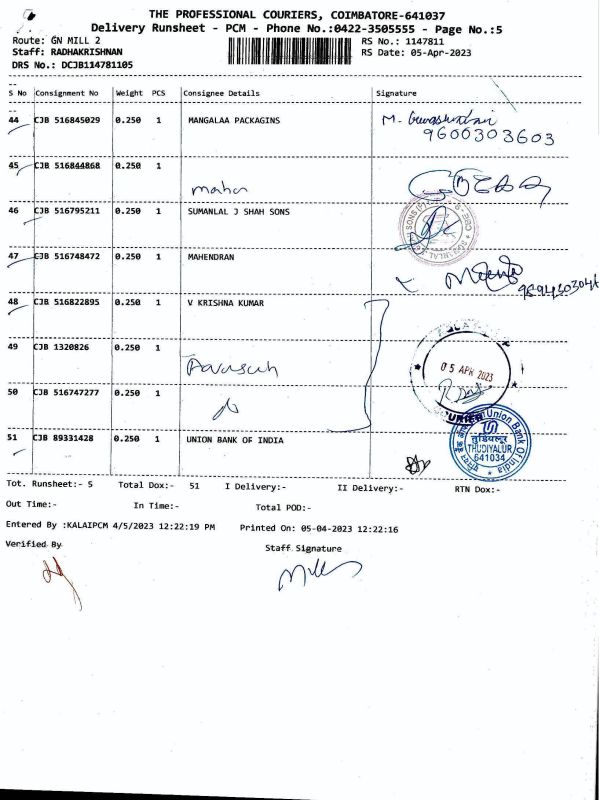 THE PROFESSIONAL COURIERS, COIMBATORE-641037
Delivery Runsheet - PCM - Phone No.:0422-3505555 - Page No.:5
Route: GN MILL 2 RS No.: 1147811
Staff: RADHAKRISHNAN RS Date: 05-Apr-2023
DRS No.: DCJB114781105
S No Consignment No Weight PCS Consignee Details Signature
44 CJB 516845029 0.250 1 MANGALAA PACKAGINS M.
9600303603
45 CJB 516844868 0.250 1
46 CJB 516795211 0.250 1 SUMANLAL J SHAH SONS
47 CJB 516748472 0.250 1 MAHENDRAN
48 CJB 516822895 0.250 1 V KRISHNA KUMAR
49 CJB 1320826 0.250 1
05 APR 2023
50 CJB 516747277 0.250 1
51 CJB 89331428 0.250 1 UNION BANK OF INDIA
Union Bank Of India
तुडियलूर
THUDIYALUR
641034
Tot. Runsheet:- 5 Total Dox:- 51 I Delivery:- II Delivery:- RTN Dox:-
Out Time:- In Time:- Total POD:-
Entered By :KALAIPCM 4/5/2023 12:22:19 PM Printed On: 05-04-2023 12:22:16
Verified By Staff Signature